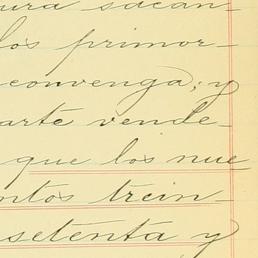 ura sacan-
los primor-
convenga; y
arte vende-
que los nue
ntos trein-
setenta y